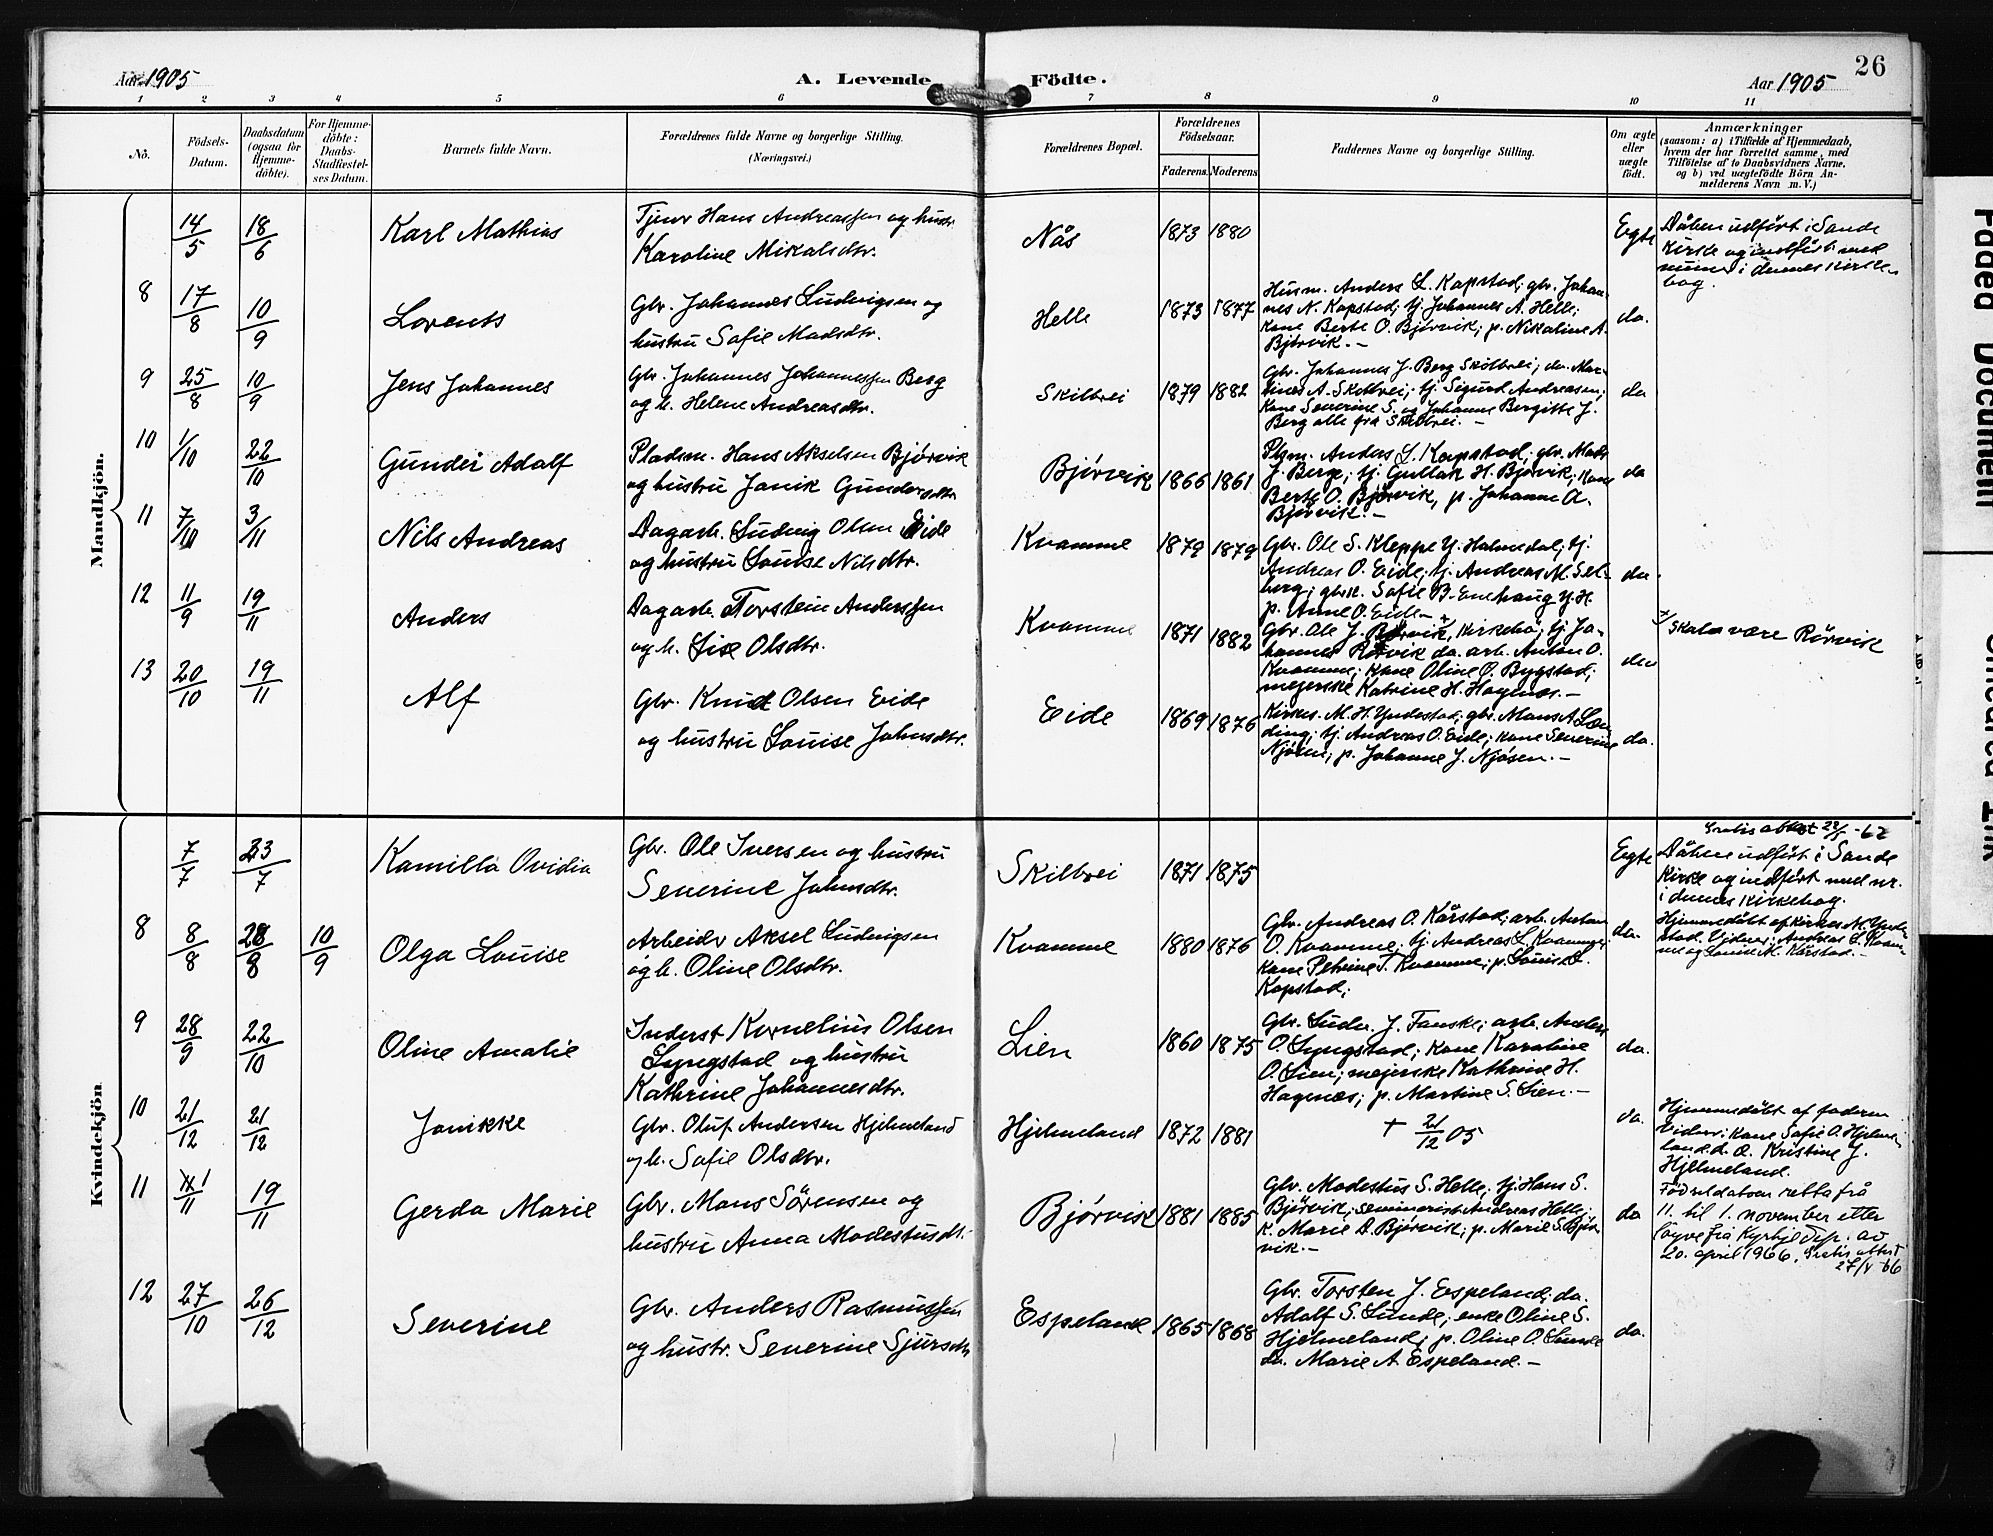 Aar 1905
A. Levende Födte.
Aar 1905
26
1 2 3 4 5 6 7 8 9 10 11
No.
Födsels-
Datum.
Daabsdatum
(ogsaa for
Hjemme-
döbte).
For Hjemme-
döbte:
Daabs-
Stadfæstel-
ses Datum.
Barnets fulde Navn.
Forældrenes fulde Navne og borgerlige Stilling.
(Næringsvei.)
Forældrenes Bopæl.
Forældrenes
Födselsaar.
Faderens. Moderens.
Faddernes Navne og borgerlige Stilling.
Om ægte
eller
uægte
födt.
Anmærkninger
(saasom: a) i Tilfælde af Hjemmedaab,
hvem der har forrettet samme, med
Tilföielse af to Daabsvidners Navne,
og b) ved uægtefödte Börn An-
melderens Navn m. V.)
Mandkjön.
14/5 18/6 Karl Mathias
Tjener Hans Andreassen og hustr.
Karoline Mikalsdtr.
Nås 1873 1880 Egte
Dåben udført i Sande
Kirke og indført med
numer i dennes kirke
bog.
8 17/8 10/9 Lorents
Gbr. Johannes Ludvigsen og
hustru Sofie Madsdtr.
Helle 1873 1877
Husm. Anders L. Kapstad; gbr. Johan-
nes N. Kapstad; tj. Johannes A. Helle;
kone Berte O. Bjørvik; p. Nikoline A.
Bjørvik. —
do.
9 25/8 10/9 Jens Johannes
Gbr. Johannes Johannessen Berg
og h. Helene Andreasdtr.
Skilbrei 1879 1882
Gbr. Johannes J. Berg Skilbrei; do. Mar-
tines A. Skilbrei; tj. Sigurd Andreasen;
kone Severine S. og Johanne Bergitte J.
Berg alle fra Skilbrei. —
do
10 1/10 22/10 Gunder Adolf
Pladsm. Hans Akselsen Bjørvik
og hustru Janik Gundersdtr
Bjørvik 1866 1861
Plsm. Anders L. Kapstad; gbr. Mads
J. Berge; tj. Gullak H. Bjørvik; kone
Berte O. Bjørvik, p. Johanne A.
Bjørvik. —
do
11 7/10 3/11 Nils Andreas
Dagarb. Ludvig Olsen Eide
og hustru Louise Nilsdtr.
Kvamme 1879 1879
Gbr. Ole S. Kleppe Y. Holmedal; tj.
Andreas O. Eide; tj. Andreas M. Sel-
berg; gbrk. Sofie B. Enehaug Y. H.
p. Anne O. Eide —
do.
12 11/9 19/11 Anders
Dagarb. Torstein Anderssen
og h. Lise Olsdtr.
Kvamme 1871 1882
Gbr. Ole J. Rørvik, Kirkebø; tj. Jo-
hannes Rørvik do. arb. Anton O.
Kvamme; kone Oline O. Bygstad;
mejerske Katrine H. Hagenæs. —
do
x/ Skal være Rörvik
13 20/10 19/11 Alf
Gbr. Knud Olsen Eide
og hustru Louise Johnsdtr.
Eide 1869 1876
Kirkes. M. H. Yndestad; gbr. Mons A. Læn
ding; tj. Andreas O. Eide; kone Severine
Njøsen; p. Johanne J. Njøsen. —
do.
Kvindekjön
7/7 23/7 Kamilla Ovidia
Gbr. Ole Iversen og hustru
Severine Johnsdtr.
Skilbrei 1871 1875 Egte
Gratis attest -62
Dåben udført i Sande
Kirke og indført med nr.
i dennes kirkebog.
8 8/8 28/8 10/9 Olga Louise
Arbeider Aksel Ludvigsen
og h. Oline Olsdtr.
Kvamme 1880 1876
Gbr. Andreas O. Kårstad; arb. Anton
O. Kvamme; tj. Andreas L. Kvamme;
kone Petrine T. Kvamme; p. Louise L.
Kapstad;
do.
Hjemmedøbt af kirkes. M. Ynde-
stad. Vidner: Andreas L. Kvam-
me og Louise M. Kårstad. —
9 28/9 22/10 Oline Amalie
Inderst Kornelius Olsen
Lyngstad og hustru
Kathrine Johannesdtr.
Lien 1860 1875
Gbr. Ludv. J. Fauske; arb. Anders
O. Lyngstad; kone Karoline
O. Lien; mejerske Kathrine H.
Hagenæs; p. Martine S. Lien. —
do.
10 21/12 21/12 Janikke
Gbr. Oluf Andersen Hjelmeland
og h. Sofie Olsdtr.
Hjelmeland 1872 1881
+ 21/12 05
do.
Hjemmedøbt af faderen
Vidner: kone Sofie O. Hjelme-
land. d. o. Kristine J.
Hjelmeland.
11 1/11 19/11 Gerda Marie
Gbr. Mons Sørensen og
hustru Anna Modestusdt.
Bjørvik 1881 1885
Gbr. Modestus S. Helle; tj. Hans S.
Bjørvik; seminarist Andreas Helle;
k. Marie D. Bjørvik; p. Marie S. Bjør
vik. —
do
Födseldatoen retta frå
11. til 1. november etter
løyve frå Kyrkjedep. av
20. april 1966. Gratis attest
27/V-66
12 27/10 26/12 Severine
Gbr. Anders Rasmussen
og hustr. Severine Sjursdtr
Espeland 1865 1868
Gbr. Torsten J. Espeland; do.
Adolf S. Sunde; enke Oline S.
Hjelmeland; p. Oline O. Sunde
do. Marie A. Espeland. —
do.
Faded Document